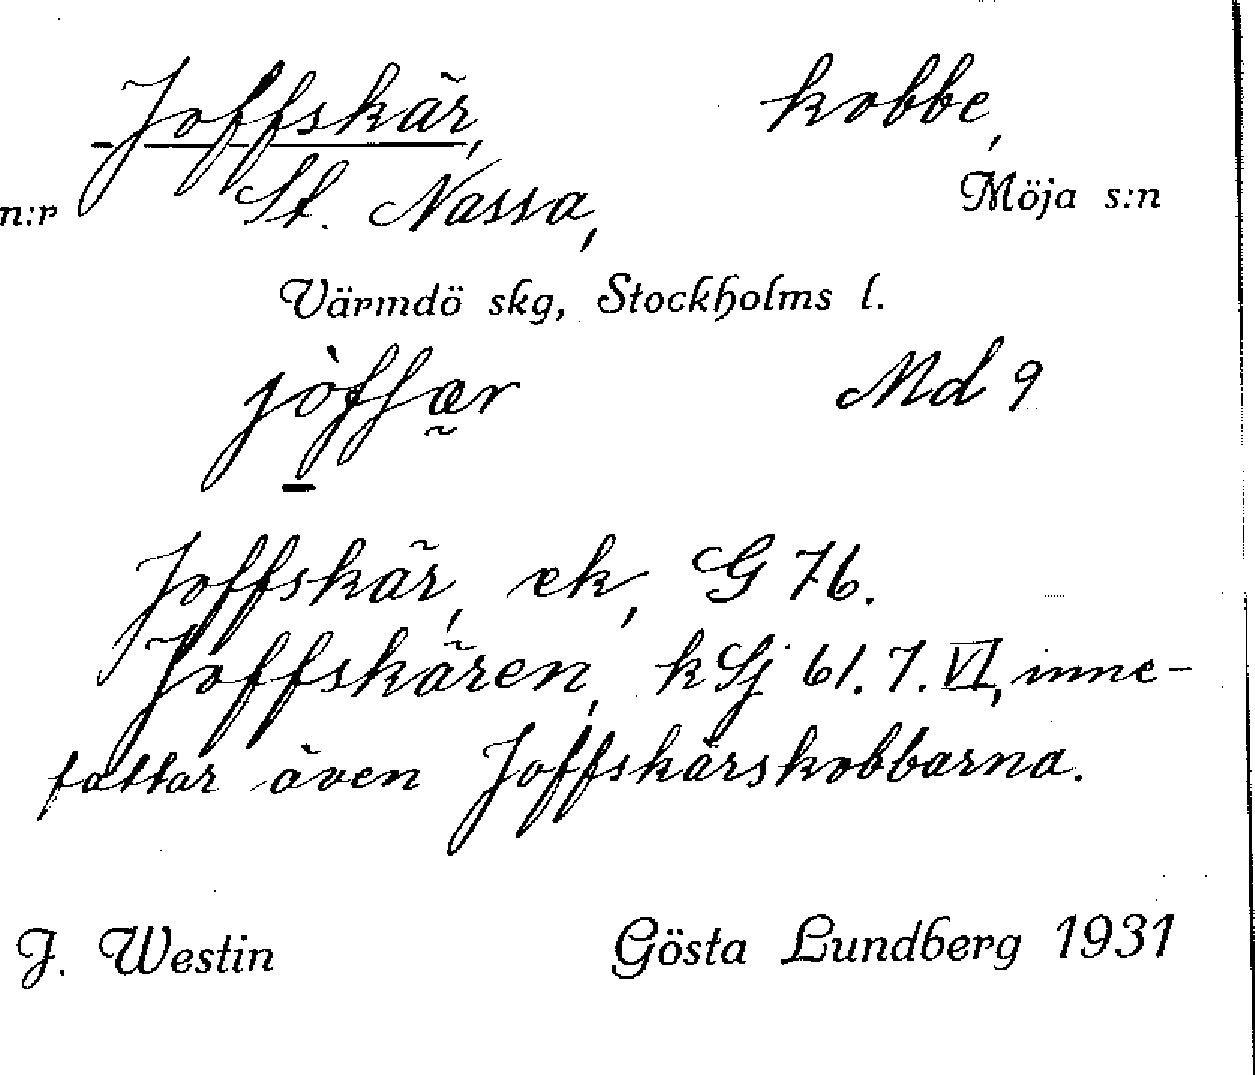 Joffskär, kobbe,
n:r St. Nassa, Möja s:n
Värmdö skg, Stockholms l.
jòffær Md 9
Joffskär, ek, G 76.
Joffskären, k Sj 61. 7. VI, inne-
fattar även Joffskärskobbarna.
J. Westin Gösta Lundberg 1931